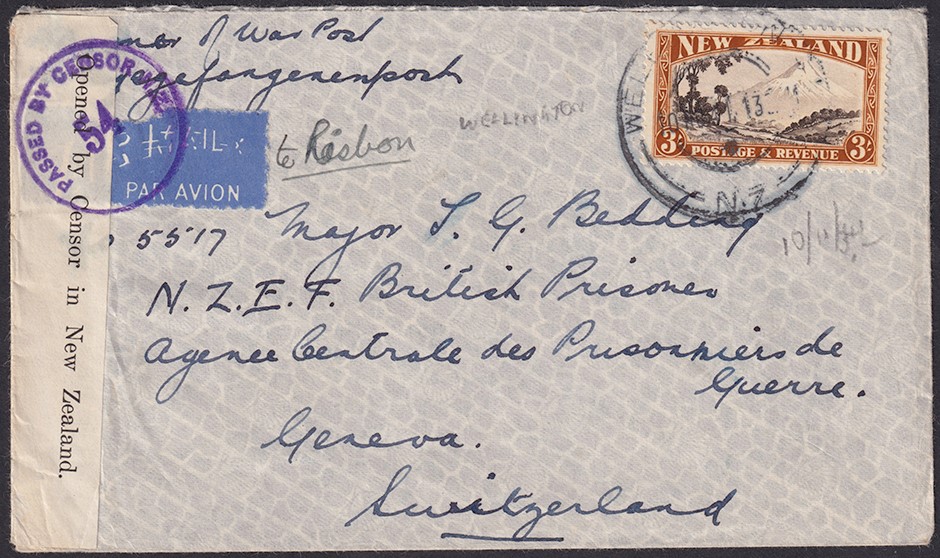 of War Post
gefangenenpost
PASSED BY CENSOR N.Z.
Opened by Censor in New Zealand.
MAIL
PAR AVION
to Lisbon
WELLINGTON
NEW ZEALAND
3/-
POSTAGE & REVENUE
3/-
N.Z.
5517 Major T. G. Bedding
N.Z.E.F. British Prisoner
Agence Centrale des Prisonniers de
Guerre.
Geneva.
Switzerland